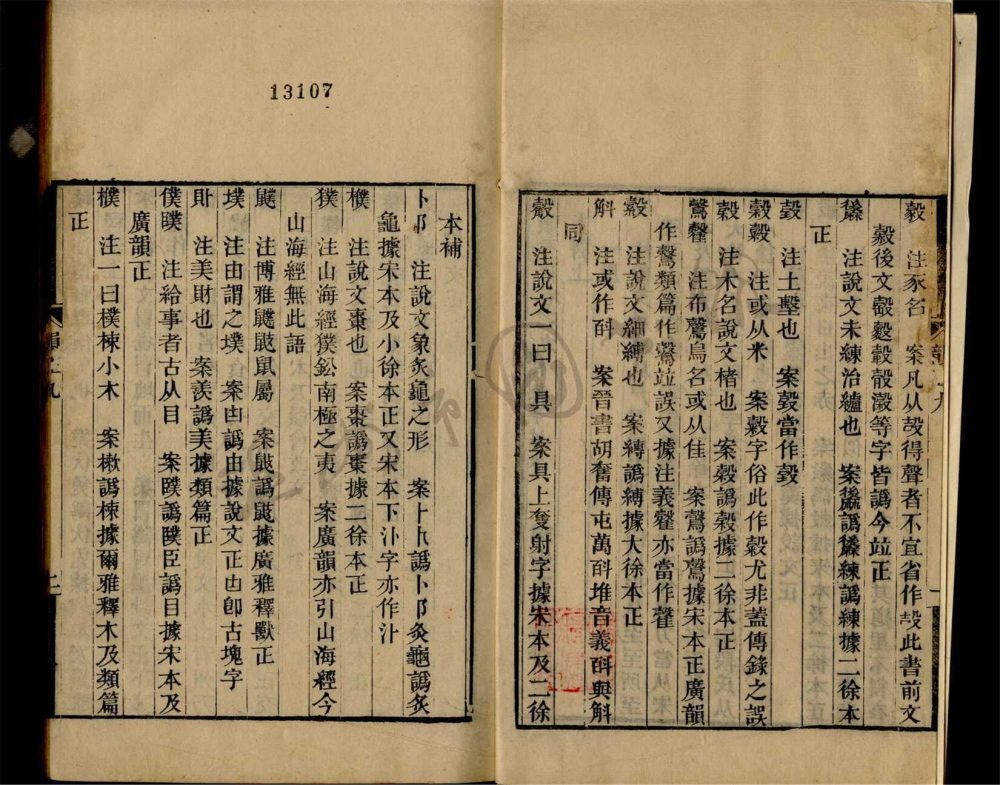 縠　注豕名　案凡从𣪊得聲者不宜省作㱿此書前文
縠後文觳轂穀瀫等字皆譌今竝正
注說文未練治纑也　案譌練譌練據二徐本
正
㲄　注土墼也　案㲄當作㲄
穀　注或从米　案穀字俗此作穀尤非蓋傳錄之誤
穀　注木名說文楮也　案穀譌穀據二徐本正
注布名或从隹　案譌據宋本正廣韻
作類篇作竝誤又據注義亦當作
縠　注說文細縳也　案縳譌縛據大徐本正
斛　注或作㪶　案晉書胡奮傳屯萬㪶堆音義㪶與斛
同
㱿　注說文一曰　具　案具上奪射字據宋本及二徐
13107
本補
卜　注說文象灸龜之形　案譌卜灸龜譌炙
龜據宋本及小徐本正又宋本下汴字亦作汴
樸　注說文棗也　案棗譌棗據二徐本正
獛　注山海經獛鈆南極之夷　案廣韻亦引山海經今
山海經無此語
注博雅鼠屬　案譌據廣雅釋獸正
墣　注由謂之墣　案凷譌由據說文正凷卽古塊字
注美財也　案羨譌美據類篇正
僕　注給事者古从目　案譌臣譌目據宋本及
廣韻正
樸　注一曰樸楝小木　案樕譌楝據爾雅釋木及類篇
正